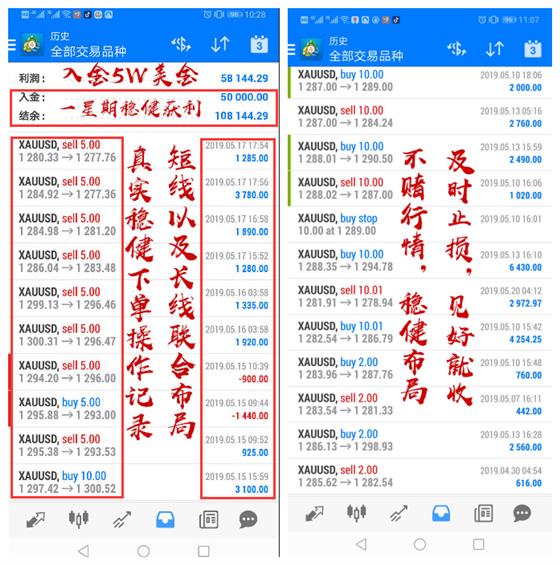 10:28
历史
全部交易品种
3
利润：
入金5W美金
58 144.29
入金：
50 000.00
一星期稳健获利
结余：
108 144.29
XAUUSD, sell 5.00
2019.05.17 17:54
1 280.33 → 1 277.76
1 285.00
XAUUSD, sell 5.00
2019.05.17 17:56
1 284.92 → 1 277.36
3 780.00
XAUUSD, sell 5.00
2019.05.17 16:58
1 284.98 → 1 281.20
1 890.00
XAUUSD, sell 5.00
2019.05.17 15:52
1 286.04 → 1 283.48
1 280.00
XAUUSD, sell 5.00
2019.05.16 03:58
1 299.13 → 1 296.46
1 335.00
XAUUSD, sell 5.00
2019.05.16 03:58
1 300.31 → 1 296.47
1 920.00
XAUUSD, sell 5.00
2019.05.15 10:39
1 294.20 → 1 296.00
-900.00
XAUUSD, buy 5.00
2019.05.15 09:44
1 295.88 → 1 293.00
-1 440.00
XAUUSD, sell 5.00
2019.05.15 09:52
1 295.38 → 1 293.53
925.00
XAUUSD, buy 10.00
2019.05.15 15:59
1 297.42 → 1 300.52
3 100.00
短线以及长线联合布局
真实稳健下单操作记录
11:07
历史
全部交易品种
3
XAUUSD, buy 10.00
2019.05.10 18:06
1 287.00 → 1 289.00
2 000.00
XAUUSD, sell 10.00
2019.05.13 05:16
1 287.00 → 1 284.24
2 760.00
XAUUSD, buy 10.00
2019.05.13 15:59
1 288.01 → 1 290.50
2 490.00
XAUUSD, sell 10.00
2019.05.10 16:06
1 288.02 → 1 287.00
1 020.00
XAUUSD, buy stop
2019.05.10 16:01
10.00 at 1 289.00
XAUUSD, buy 10.00
2019.05.13 16:10
1 288.35 → 1 294.78
6 430.00
XAUUSD, sell 10.01
2019.05.20 04:12
1 281.91 → 1 278.94
2 972.97
XAUUSD, buy 10.01
2019.05.10 15:42
1 282.54 → 1 286.79
4 254.25
XAUUSD, buy 2.00
2019.05.10 15:48
1 283.96 → 1 287.76
760.00
XAUUSD, sell 2.00
2019.05.07 16:11
1 283.54 → 1 281.33
442.00
XAUUSD, buy 2.00
2019.05.13 16:28
1 286.13 → 1 298.93
2 560.00
XAUUSD, sell 2.00
2019.04.30 04:54
1 285.62 → 1 282.54
616.00
及时止损，见好就收
不赌行情，稳健布局